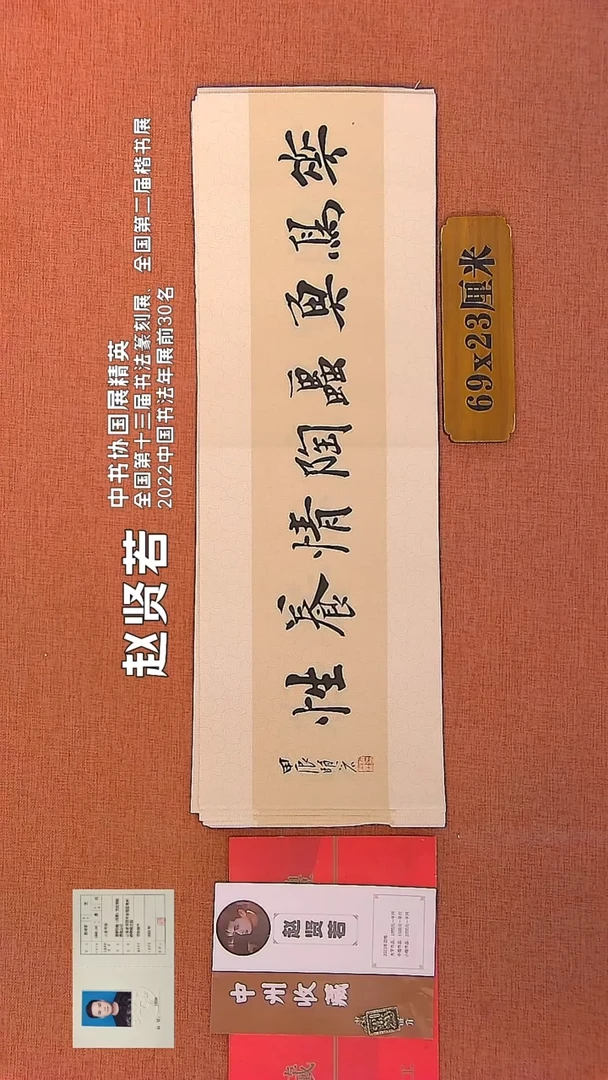 赵贤若
中书协国展精英
全国第十三届书法篆刻展、全国第二届楷书展
2022中国书法年展前30名
華鳥魚蟲陶情養性
甲辰賢若
69x23厘米
赵贤若
中州收藏
藏